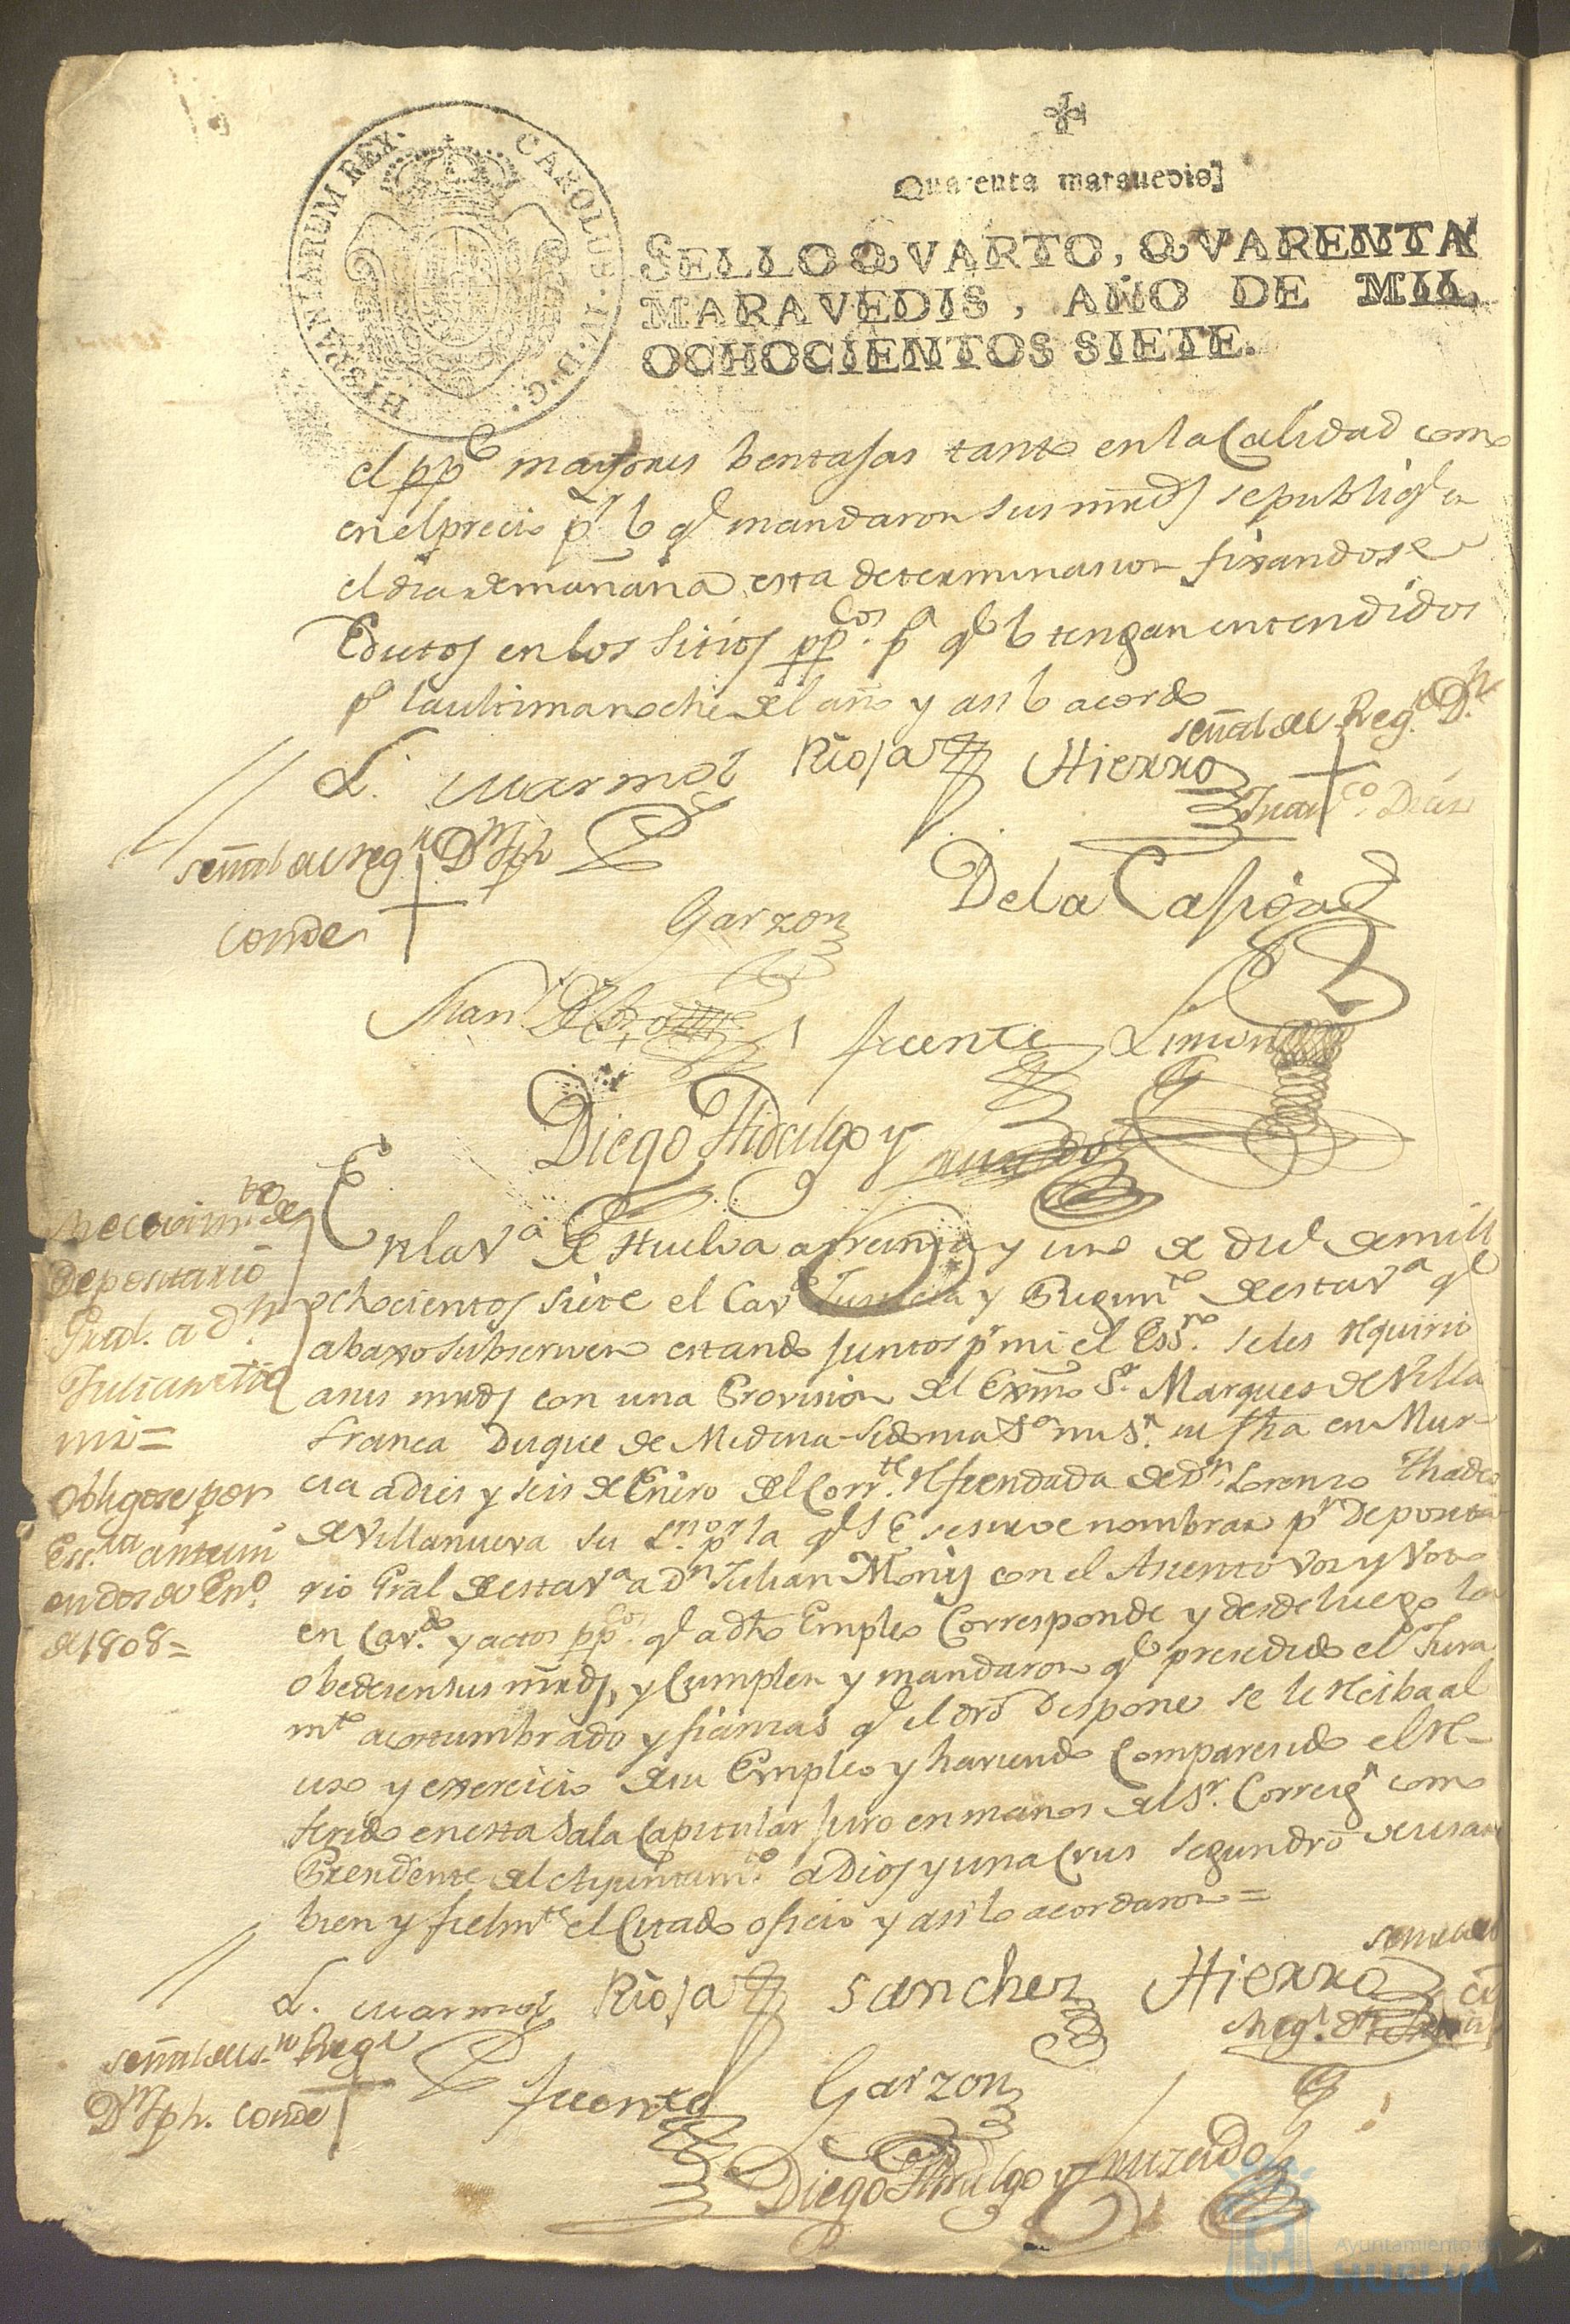 CAROLUS. IV. D. G. HISPANIARUM REX.
Quarenta maravedis
SELLO QVARTO, QVARENTA
MARAVEDIS, AÑO DE MIL
OCHOCIENTOS SIETE.
el ppco mayores bentajas tanto en la Calidad como
en el precio pr lo qe mandaron sus mrds se publiqe en
el dia de mañana esta determinasion fixandose
Edictos en los sitios ppcos. pa qe lo tengan entendidos
pa la ultima noche del año y asi lo acordo
L. Marmol Rioja Hierro señal del Regor Dn
Juan Co. Dias
señal del regor Dn Jph
Conde
Garzon De la Casa
Manl de
Fuente Limon
Diego Hidalgo y
Recevimto de
Depositario
Gral. a dn
Julian
Moñi=
Obligose por
Essra ante mi
en dos de Eno
de 1808=
En la Va de Huelva a treinta y uno de Dice de mill
ochocientos siete el Cavo Justicia y Regimto de esta Va qe
abaxo subscriven estando juntos pr mi el Essno. se les requirio
a sus mrds con una Provision del Exmo Sr. Marques de Villa
franca Duque de Medina-Sidonia mi Sr. su fha en Mur-
cia a dies y seis de Enero del Corrte. Refrendada de dn Lorenzo Thadeo
de Villanueva su Srio pr la qe S. E. se sirve nombrar pr Deposita
rio Gral de esta Va a dn Julian Moñiz con el Asiento vos y voto
en Cavdo. y actos ppcos. qe a dho Empleo Corresponde y desde luego la
obedesen sus mrds, y Cumplen y mandaron qe presedido el Jura
mto acostumbrado y fianzas qe el dro dispone se le Resiba al
uso y exercicio de su Empleo y haviendo Comparesido el Re-
ferido en esta Sala Capitular juro en manos del Sr. Corregr como
Precidente del Ayuntamto. a Dios y una Crus segun dro de usar
bien y fielmte el Citado oficio y asi lo acordaron=
L. Marmol Rioja Sanchez Hierro señal del
Regr. dn
señal del sr Regor
Dn Jph. Conde
Fuente Garzon
Diego Hidalgo y
Ayuntamiento de
HUELVA